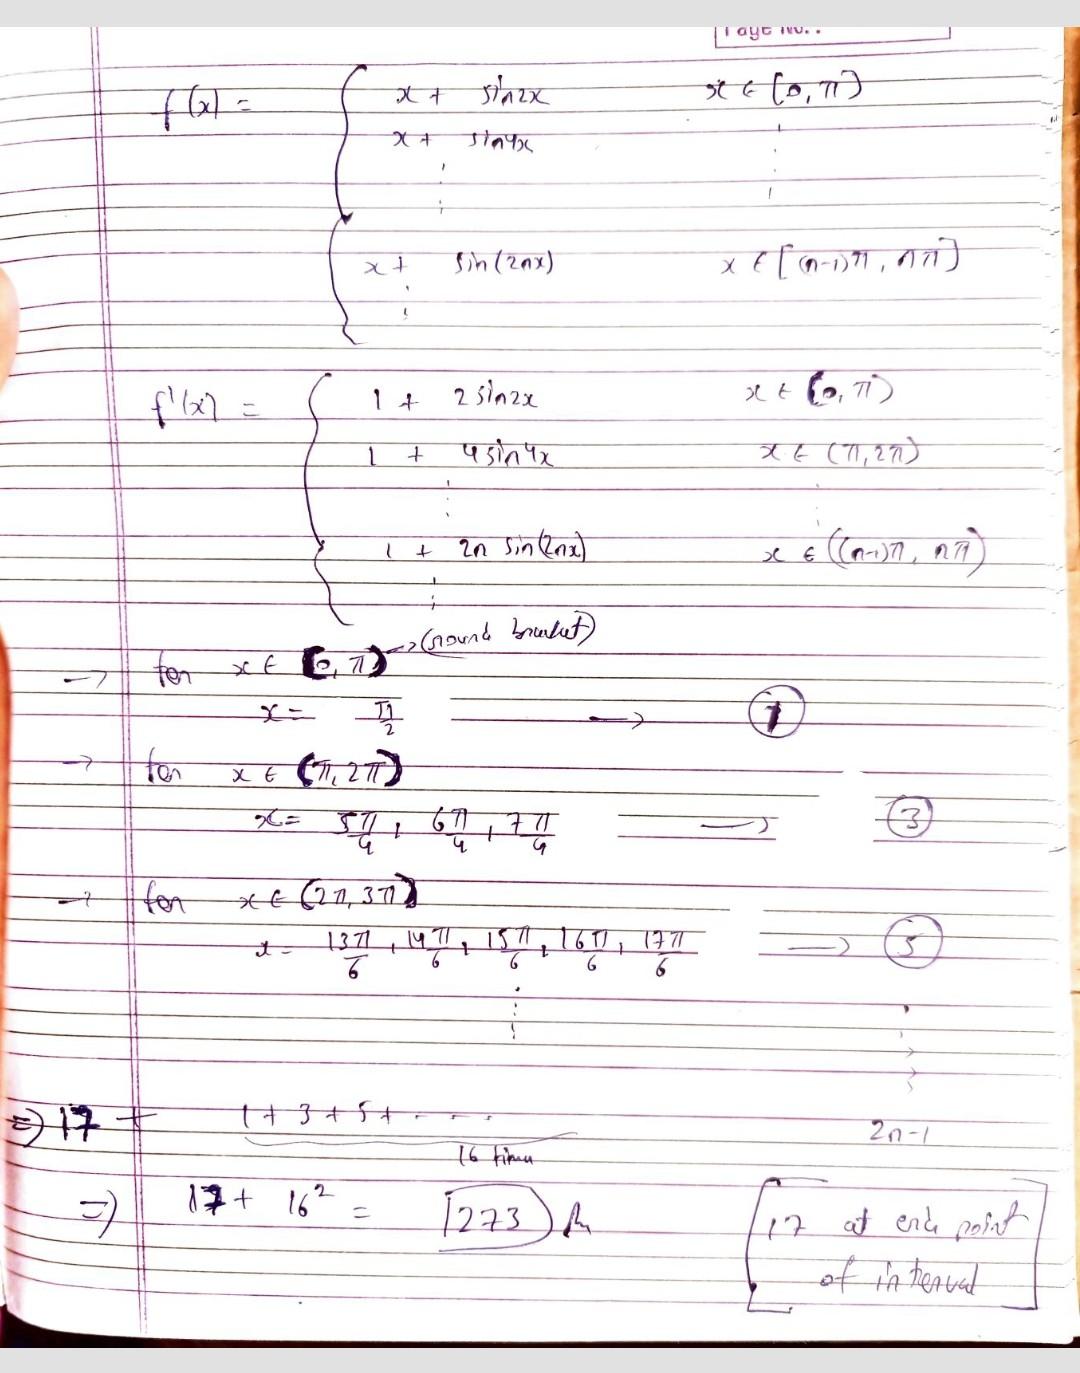 Page No. :
f(x) = { x + sin2x x ∈ [0, π)
x + sin4x
x + sin(2nx) x ∈ [(n-1)π, nπ]
f'(x) = { 1 + 2sin2x x ∈ (0, π)
1 + 4sin4x x ∈ (π, 2π)
1 + 2n sin(2nx) x ∈ ((n-1)π, nπ)
→ (round bracket)
→ for x ∈ (0, π)
x = π/2 → 1
→ for x ∈ (π, 2π)
x = 5π/4, 6π/4, 7π/4 → 3
→ for x ∈ (2π, 3π)
x = 13π/6, 14π/6, 15π/6, 16π/6, 17π/6 → 5
⇒ 17 + 1 + 3 + 5 + - - - . . 2n-1
16 times
⇒ 17 + 16² = 273
[17 at end point
of interval]